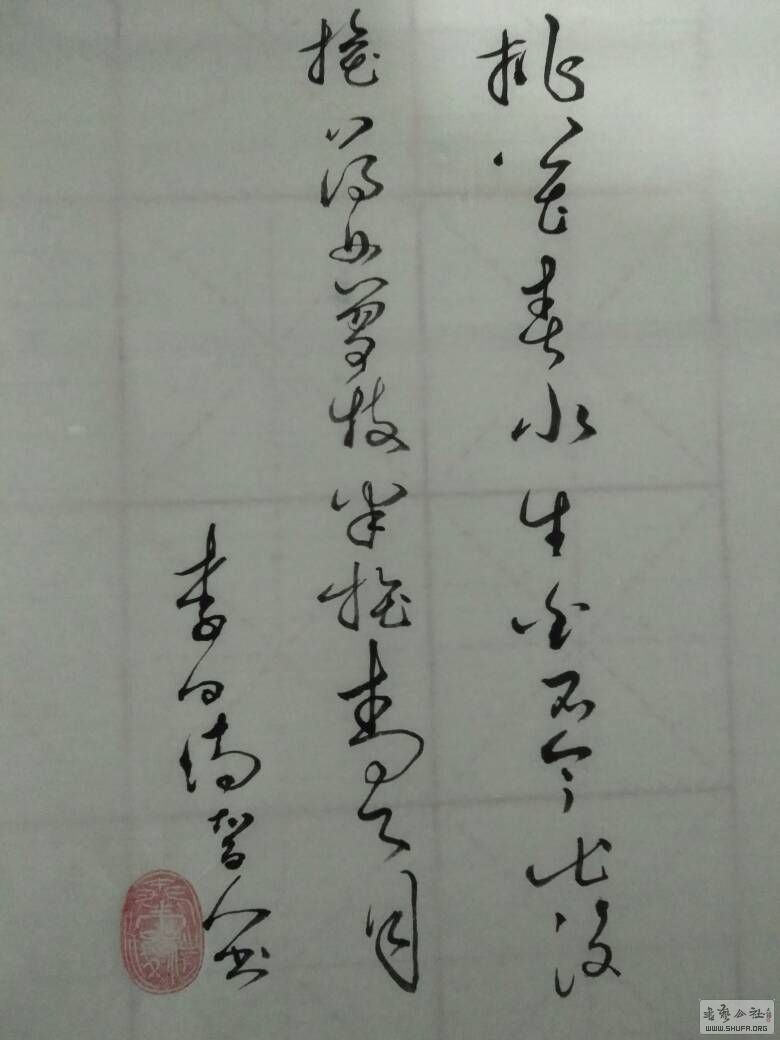 桃花春水生白石今出没
摇荡女萝枝半摇青天月
李白诗智人书
书艺公社
WWW.SHUFA.ORG